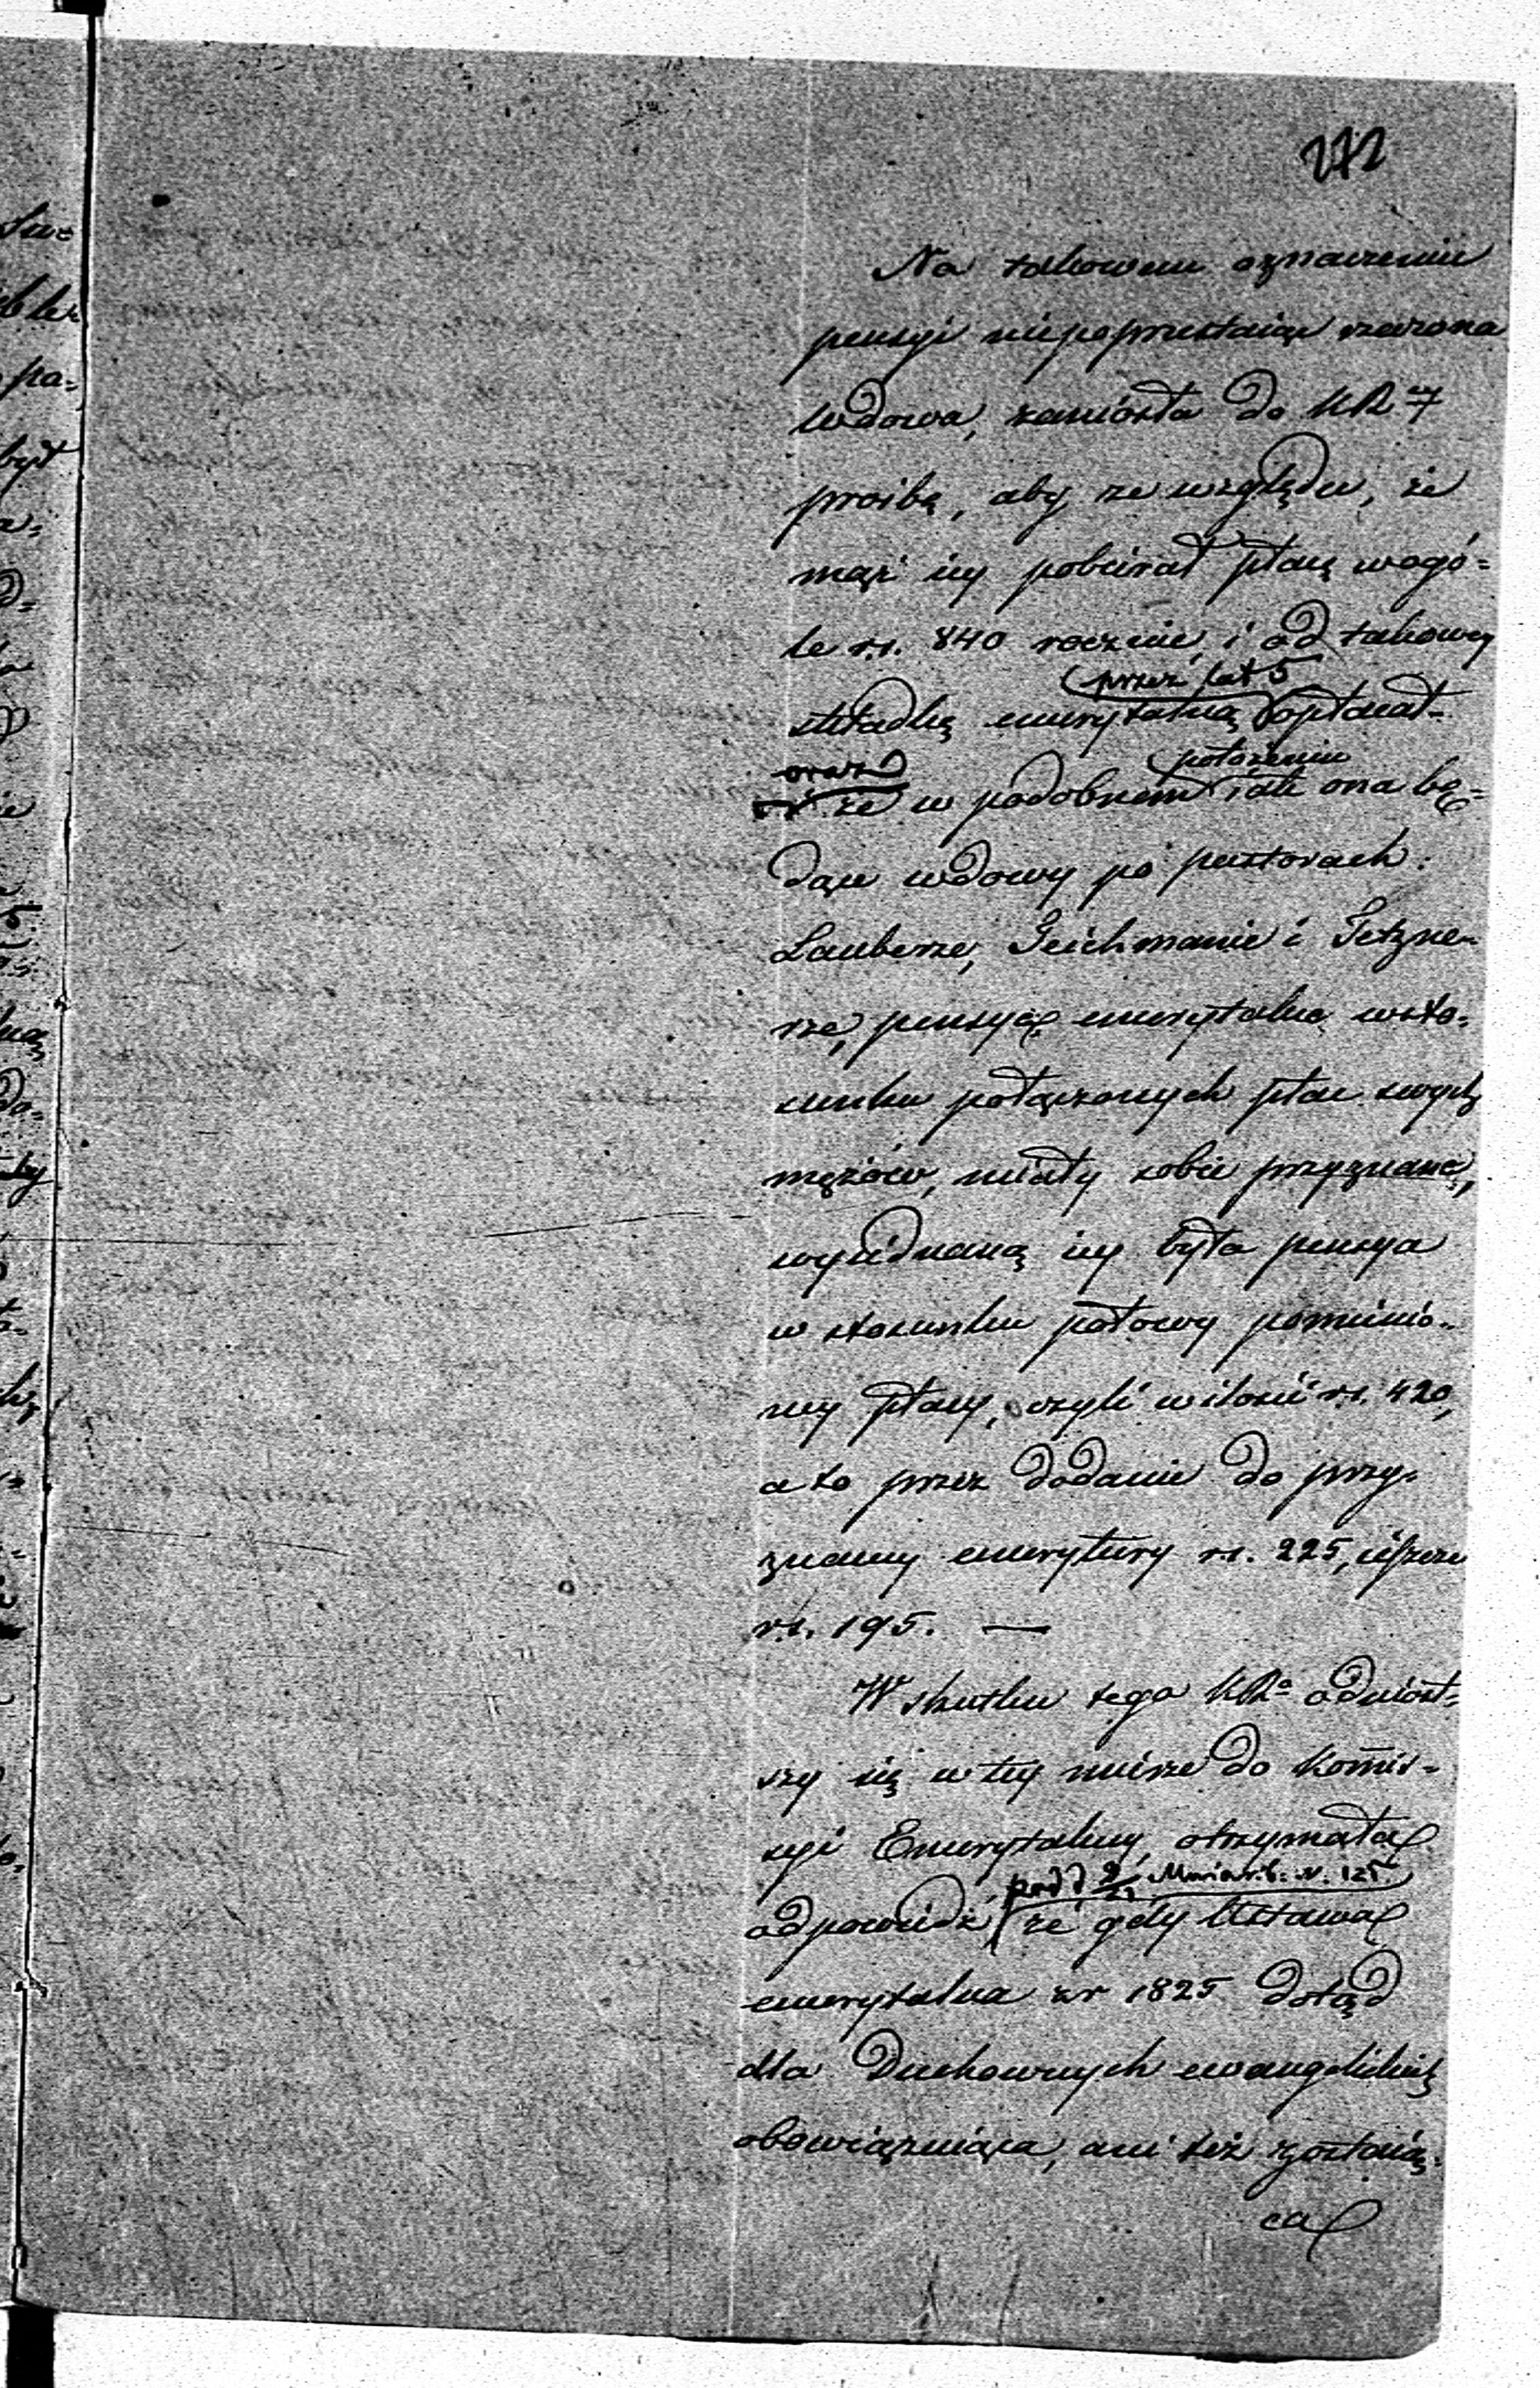 272
Na takowem oznaczeniu
pensyi niepoprzestaiąc rzeczona
wdowa, zaniosła do KR
proźbę, aby ze względu, że
mąż iey pobierał płacę wogó-
le r.s. 840 rocznie, i od takowey
przez lat 5
składkę emerytalną opłacał
oraz położeniu
że w podobnem iak ona bę-
dące wdowy po pastorach:
Lauberze, Teichmanie i Tetzne-
rze, pensye emerytalne wsto-
sunku połączonych płac swych
mężów, miały sobie przyznane,
wyiednaną iey była pensya
w stosunku połowy pomienio-
ney płacy, czyli w ilości r.s. 420,
a to przez dodanie do przy-
znaney emerytury r.s. 225, ieszcze
r.s. 195. —
W skutku tego KRa odniosł-
szy się w tey mierze do Kom̄is-
syi Emerytalney, otrzymała
pod d 9/21 Marca r.b. N. 125
odpowiedź, że gdy Ustawa
emerytalna z r 1825 dotąd
dla Duchownych ewangelickich
obowiązuiąca, ani też zostaią-
ca